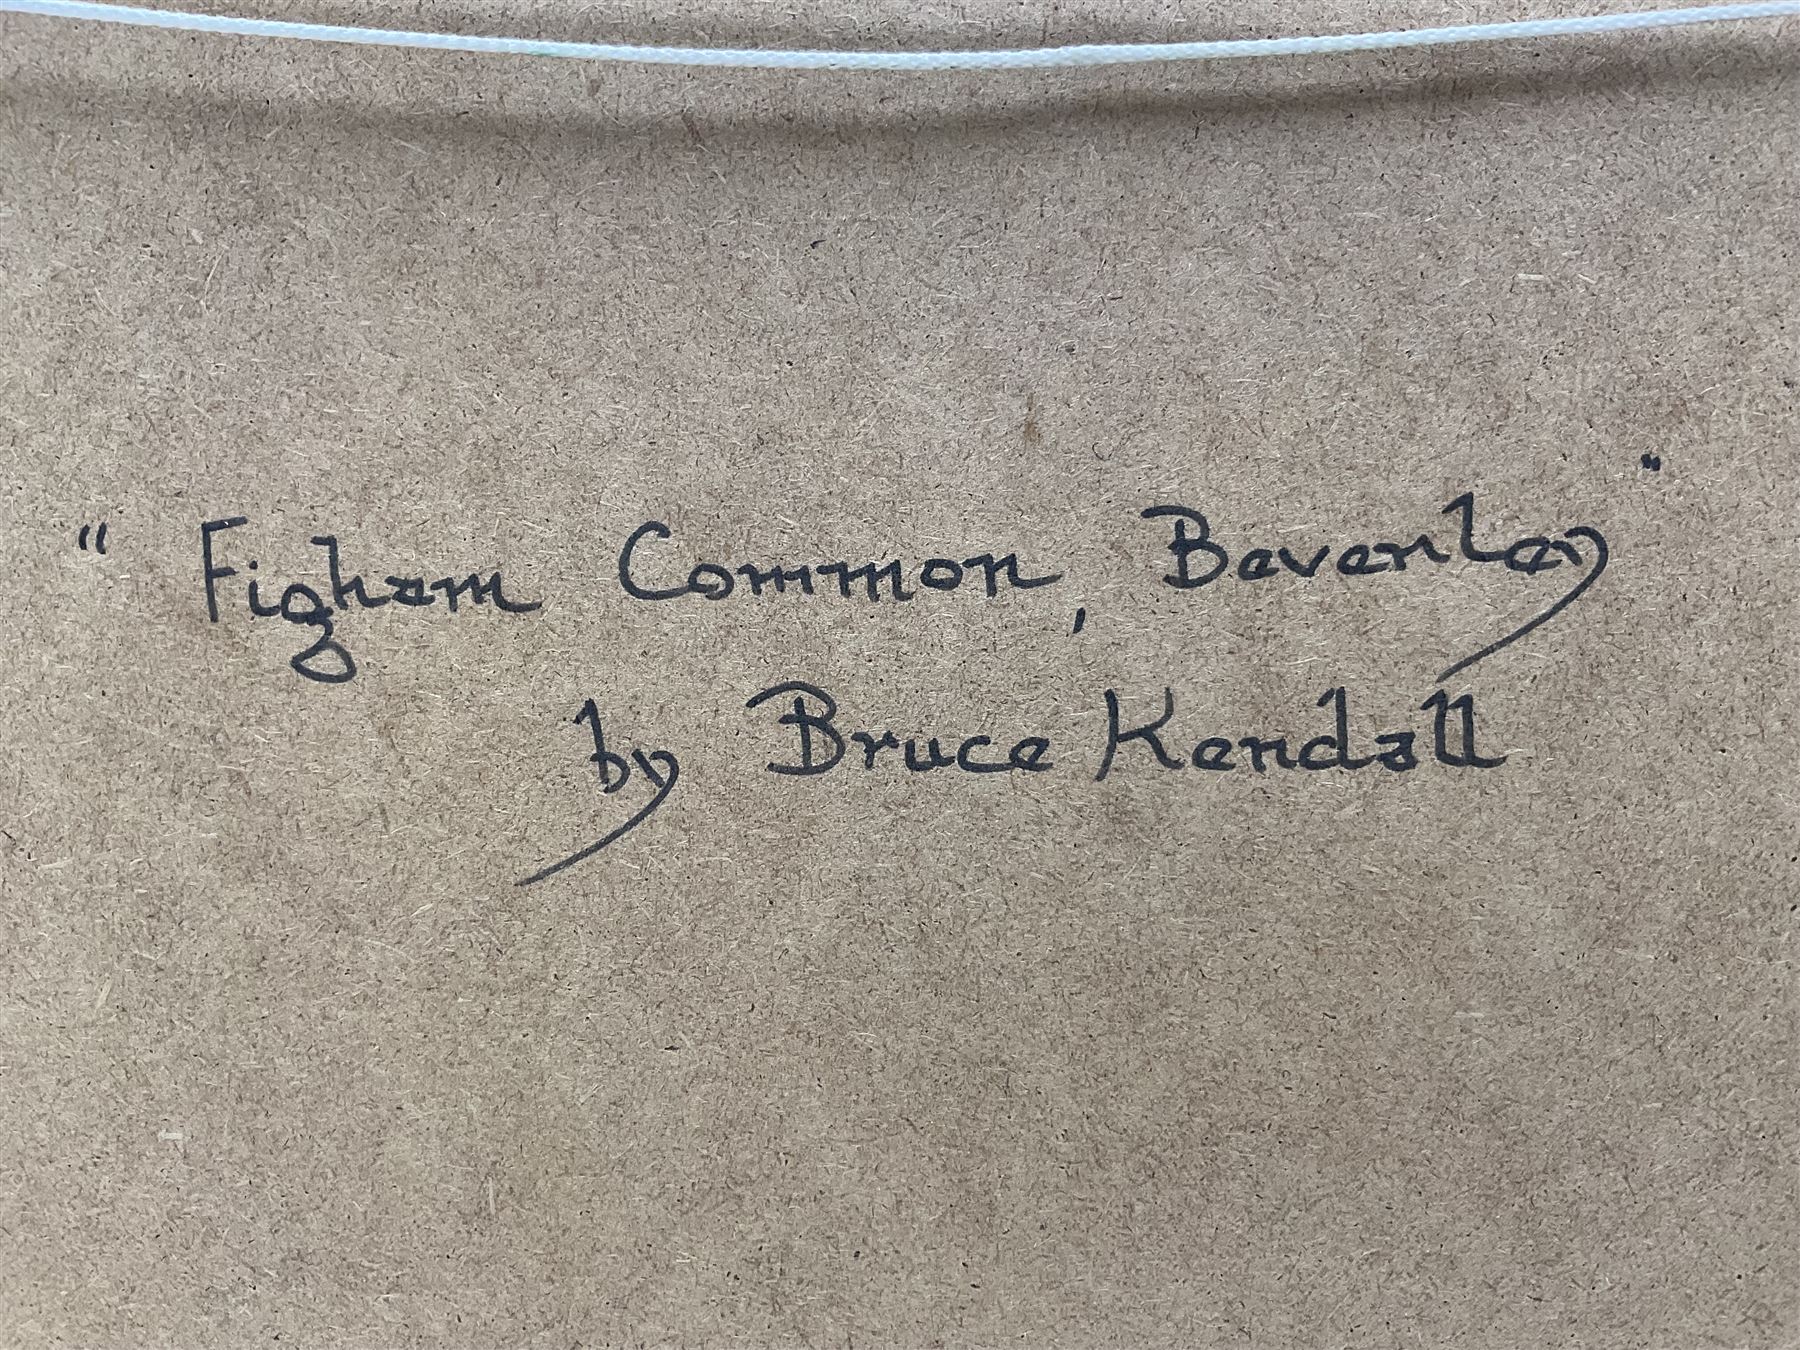 "Figham Common, Beverley"
by Bruce Kendall